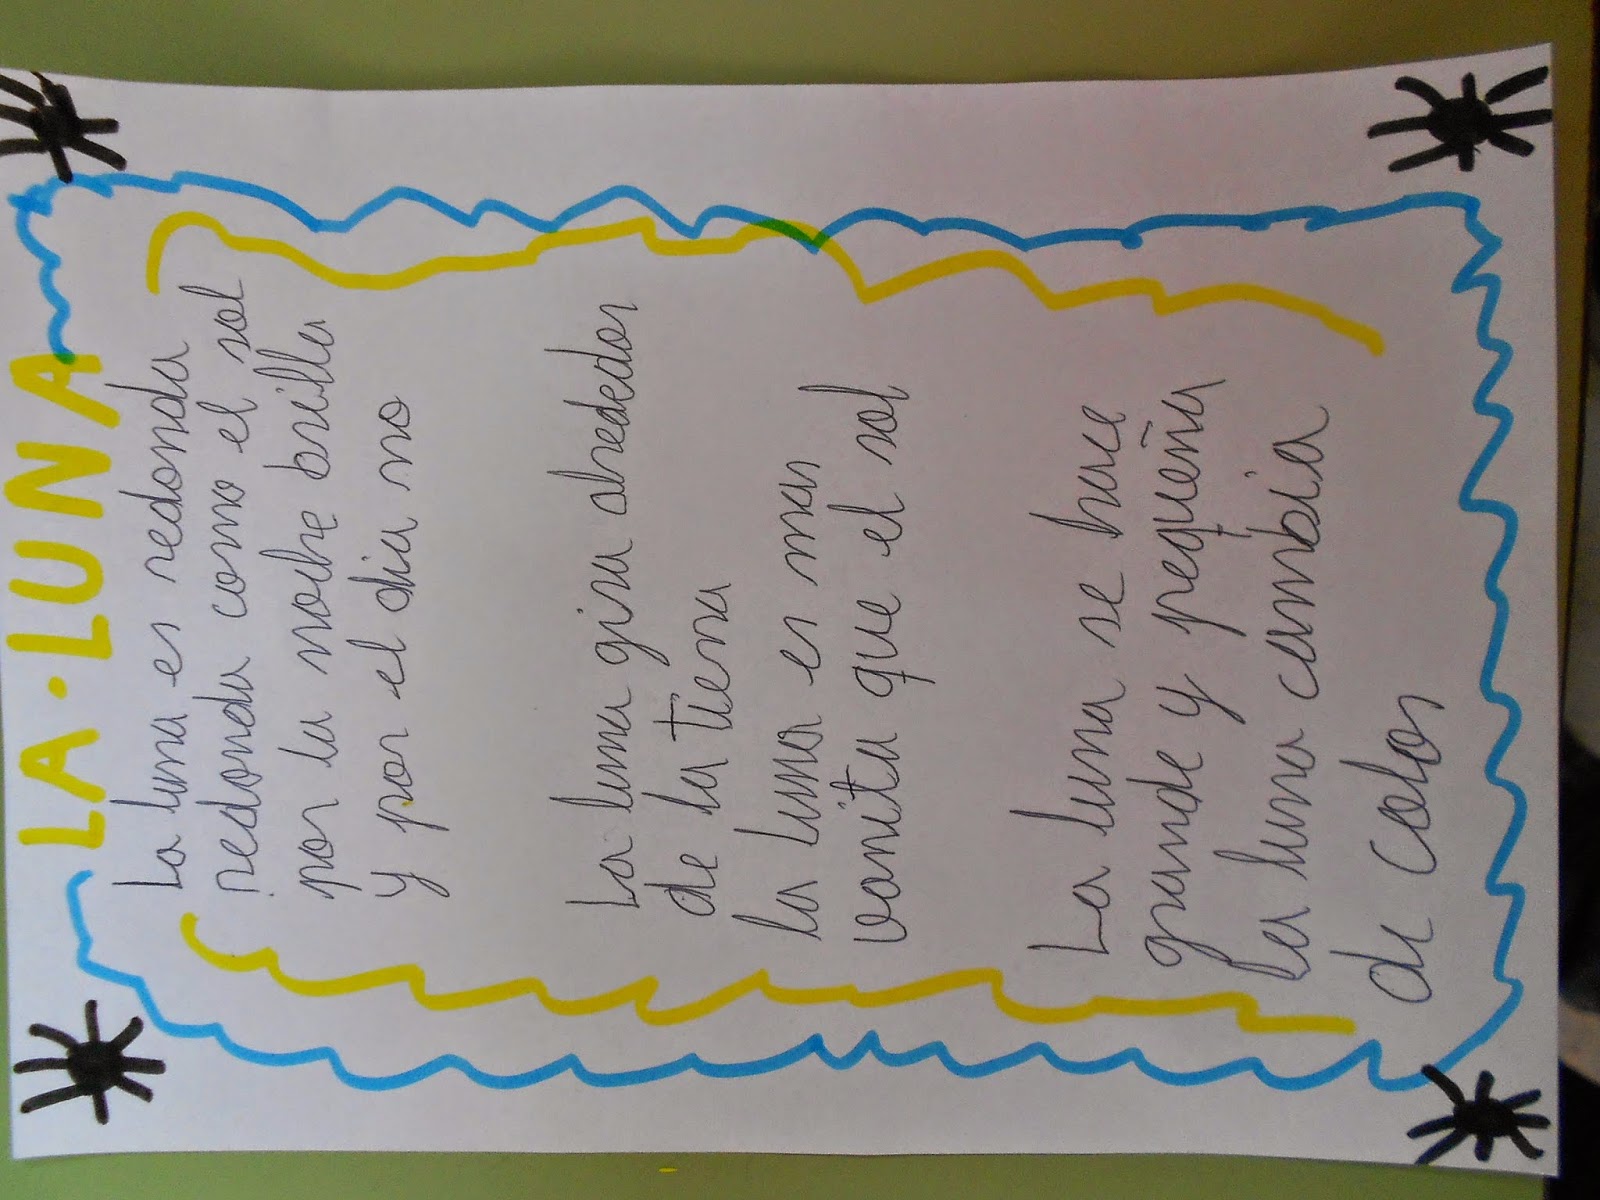 LA·LUNA
La luna es redonda
redonda como el sol
por la noche brilla
y por el dia no
La luna gira alrededor
de la Tierra
la luna es mas
vonita que el sol
La luna se hace
grande y pequeña
la luna cambia
de color